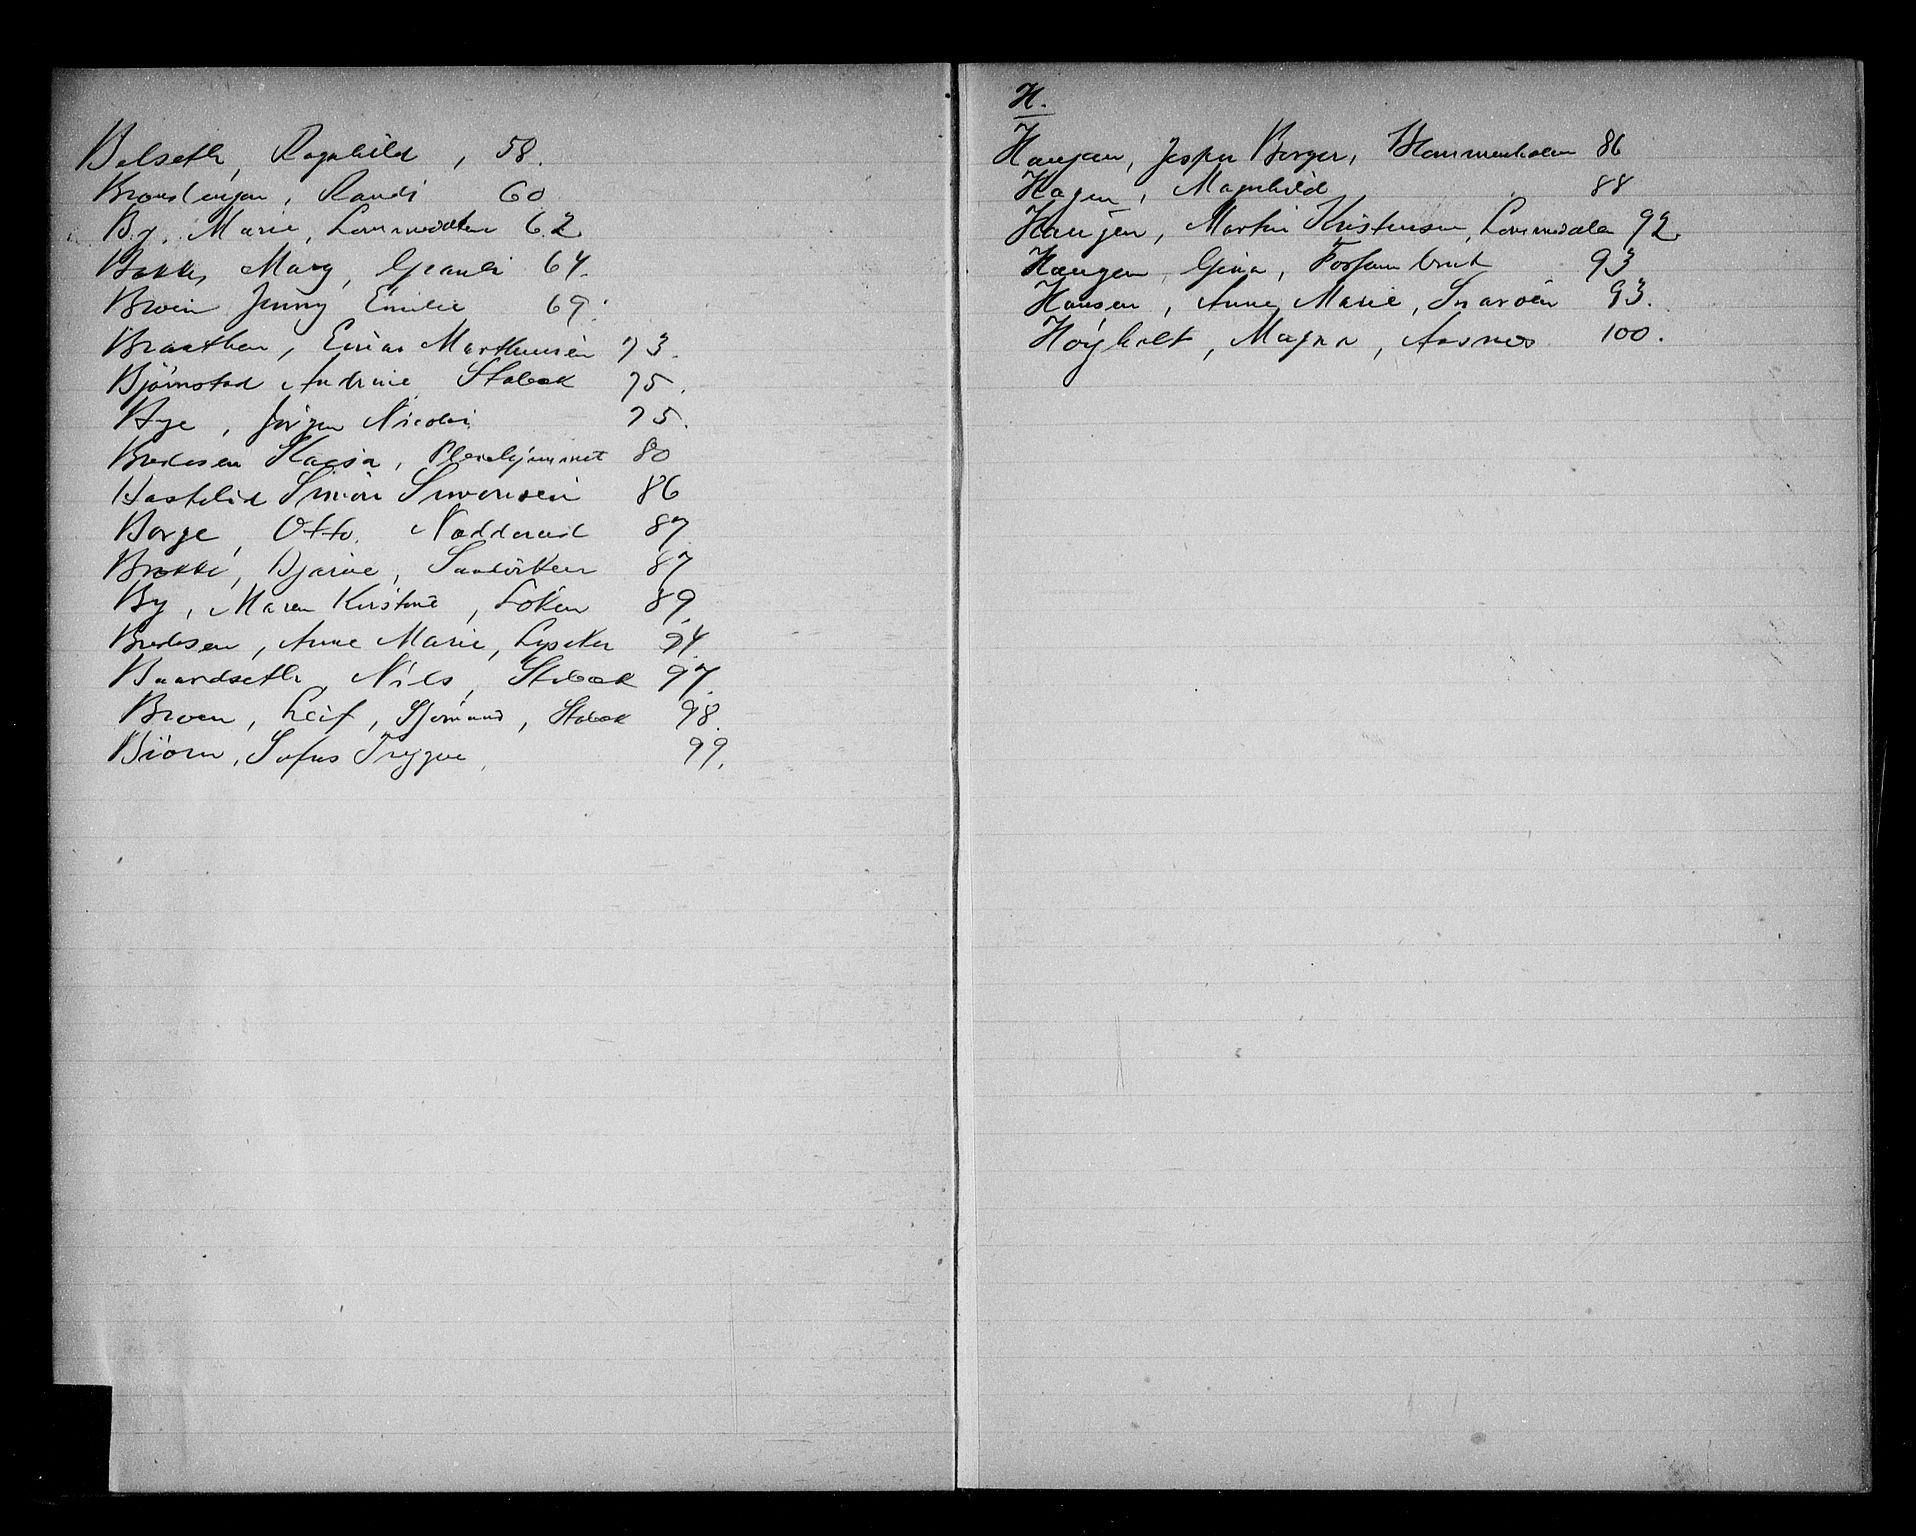 Belseth, Ragnhild, 58.
Randi 60
By, Marie, Lommedalen 62.
Bakke, Mary, Granli 64.
Broen Jenny Emilie 69.
Braathen, Einar Marthinsen 73.
Bjørnstad Andrine Stabæk 75.
Bye, Jørgen Nicolai 75.
Bredesen Kaisa, Pleiehjemmet 80
Hastelid Simon Simonsen 86
Borge, Otto. Nadderud 87
Brække, Bjarne, Sandviken 87
By, Maren Kristine, Løken 89.
Bredesen, Anne Marie, Lysaker 94.
Baardseth, Nils, Stabæk 97.
Broen, Leif, Stabæk 98.
Biørn, Sofus Trygve 99.
H.
Haugan, Jesper Borger, Blommenholm 86
Hagen, Magnhild 88
Haugen, Martin Kristensen, Lommedalen 92.
Haugen, Gina, Fossum bruk 93
Hansen, Anne Marie, Snarøen 93.
Høyholt, Magna, Aasnes 100.